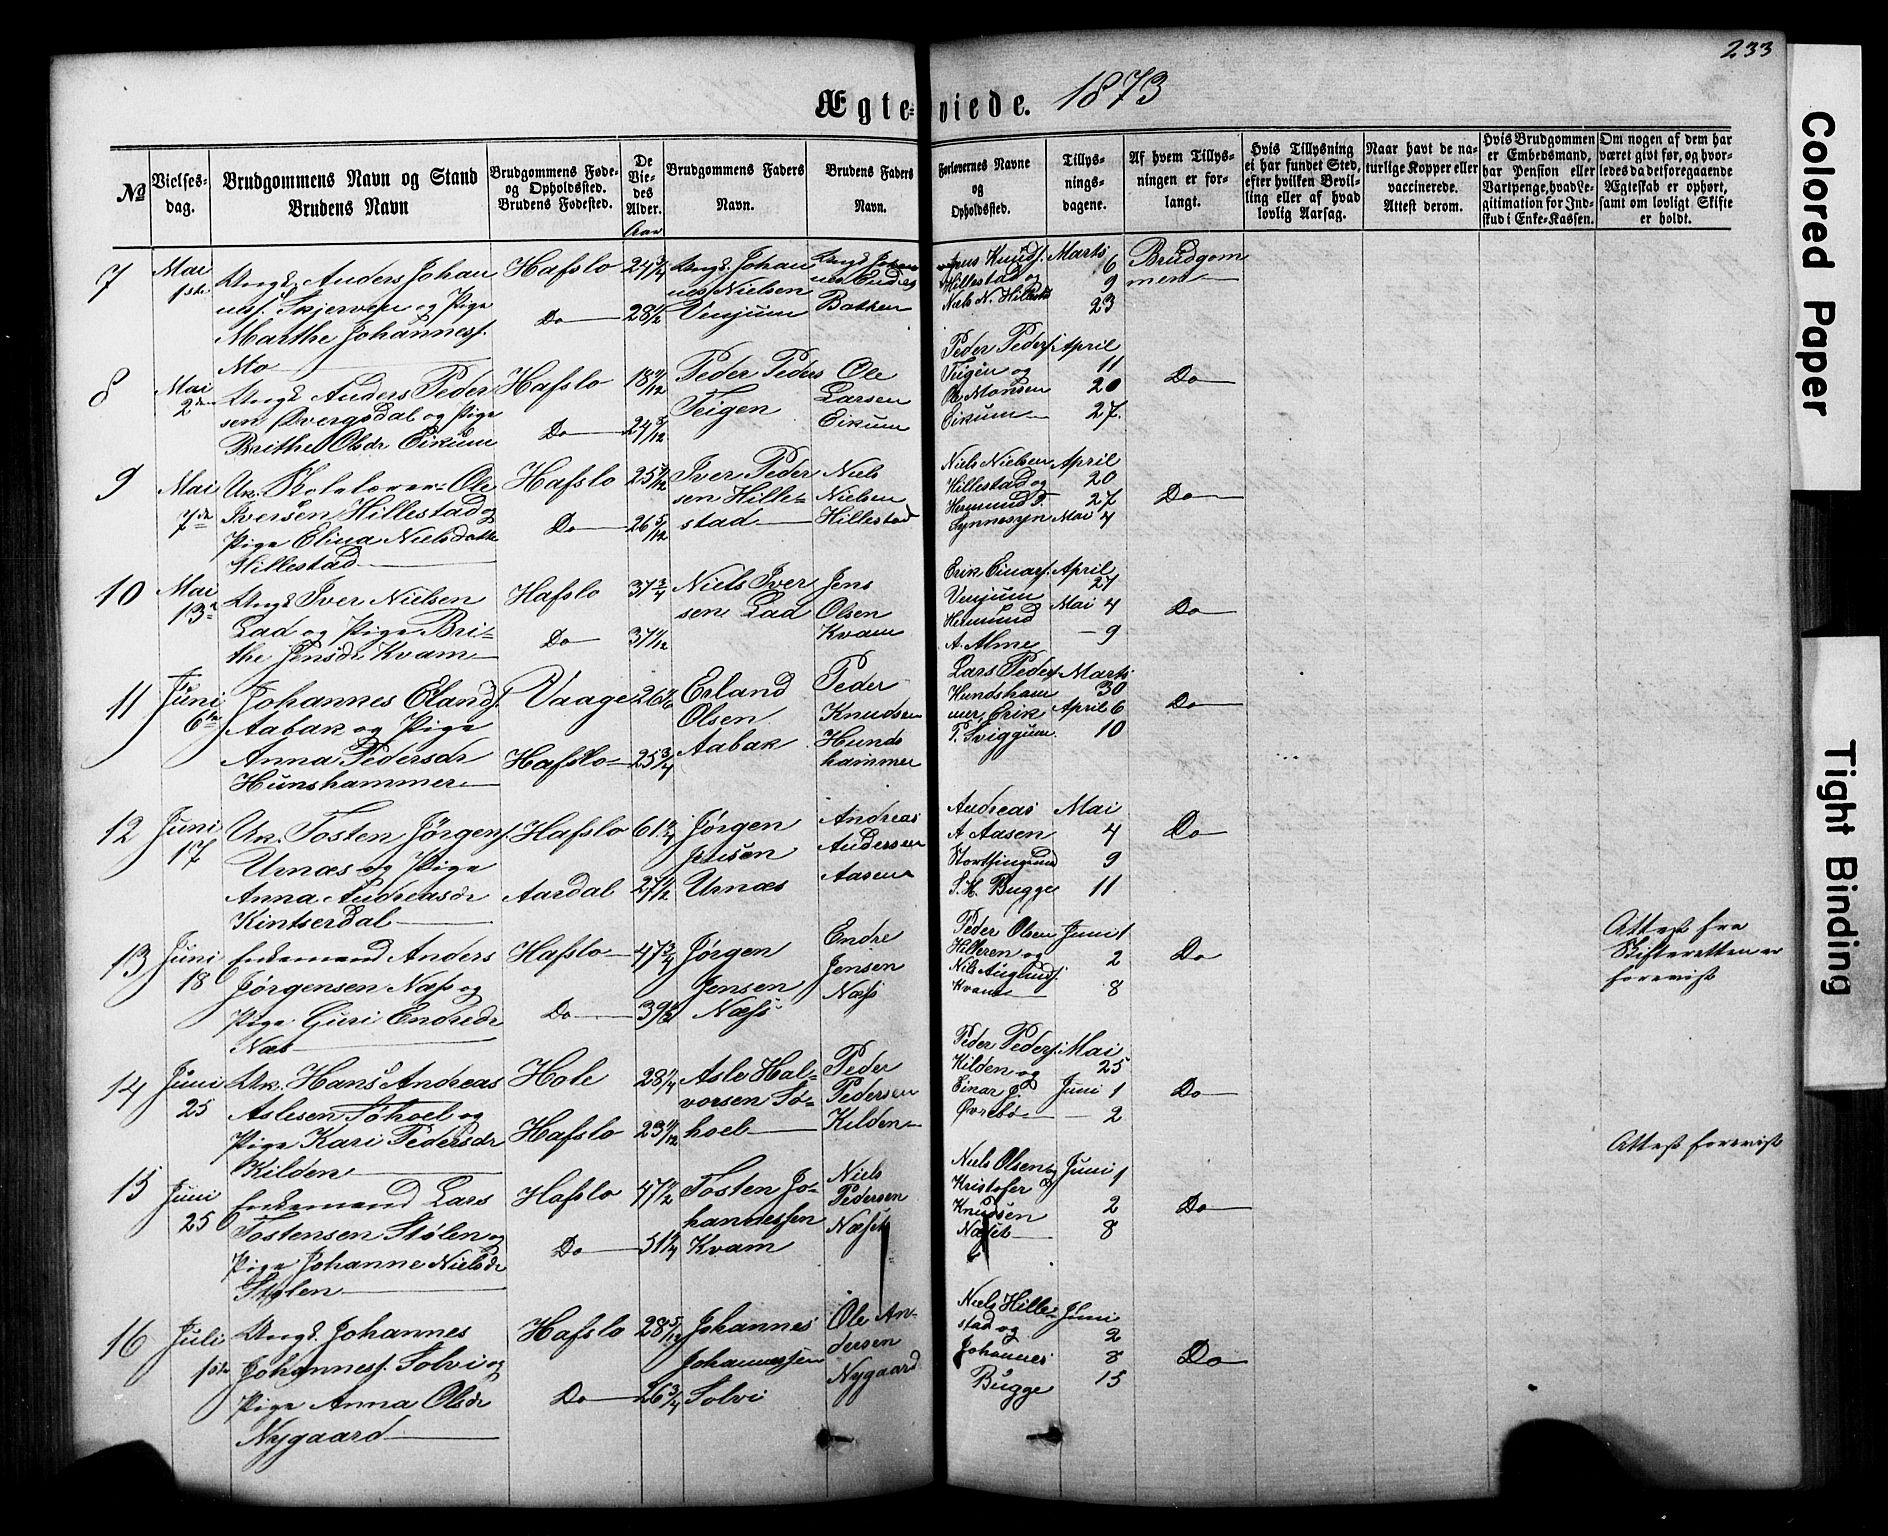 233
Ægteviede. 1873
№
Vielsesdag.
Brudgommens Navn og Stand
Brudens Navn
Brudgommens Føde- og Opholdssted.
Brudens Fødested.
De Viedes Alder.
Aar
Brudgommens Faders Navn.
Brudens Faders Navn.
Forlovernes Navne og Opholdssted.
Tillysningsdagene.
Af hvem Tillysningen er forlangt.
Hvis Tillysning ei har fundet Sted, efter hvilken Bevilling eller af hvad lovlig Aarsag.
Naar havt de naturlige Kopper eller vaccinerede.
Attest derom.
Hvis Brudgommen er Embedsmand, har Pension eller Vartpenge, hvad Legitimation for Indskud i Enke-Kassen.
Om nogen af dem har været givt før, og hvorledes da det foregaaende Ægteskab er ophørt, samt om lovligt Skifte er holdt.
7
Mai 1ste
Ungk. Anders Johan
nesf. Skjerven og Pige
Marthe Johannesf.
Mo
Hafslo
Do
24 3/4
28 1/2
Ungk. Johan
nes Nielsen
Venjum
Batken
Jens Knudf.
Hillestad og
Niels N. Hillestad
Marts
6
9
23
Brudgom
men
8
Mai 2den
Ungk. Anders Peder
sen Dvergsdal og Pige
Brithe Olsdr Eikum
Hafslo
Do
24 5/12
Peder Peders
Teigen
Ole
Larsen
Eikum
Peder Pedersf.
Teigen og
Ole Monsen
Eikum
April
11
20
27.
Do
9
Mai
7de
Un. Ole
Iversen Hillestad og
Pige Elina Nielsdatte
Hillestad
Hafslo
Do
26 5/12
Iver Peder
sen Hille-
stad
Niels
Nielsen
Hillestad
Niels Nielsen
Hillestad og
Hermund T.
Lynnesyn
April
20
27
Mai 4
Do
10
Mai
13de
Ungk Iver Nielsen
Lad og Pige Bri-
the Jensdr Kvam
Hafslo
Do
37 3/4
37 1/12
Niels Iver
sen Lad
Jens
Olsen
Kvam
Erik Einarsf.
Venjum
Hermund
A. Alme
April
27
Mai 4
9
Do
11
Juni
6te
Johannes Elandsf.
Aabak og Pige
Anna Pedersdr
Hunshammer
Vaage
Hafslo
25 3/4
Erland
Olsen
Aabak
Peder
Knudsen
Hunds
hammer
Lars Pedersf.
Hundsham
mer, Erik
P. Sviggum.
Marts
30
April 6
10
Do
12
Juni
17
Un. Tosten Jørgensf.
Urnæs og Pige
Anna Andreasdr
Kintserdal
Hafslo
Aardal
27 1/2
Jørgen
Jensen
Urnæs
Andreas
Andersen
Aasen
Andreas
A Aasen
Storthingsmd
S. H. Bugge
Mai
4
9
11
Do
13
Juni
18
Enkemand Anders
Jørgensen Næss og
Pige Guri Endredr
Næs
Hafslo
Do
47 3/4
Jørgen
Jensen
Næss
Endre
Jensen
Næss
Peder Olsen
Hilleren og
Kvam
Juni 1
2
8
Do
Attest fra
Skifteretten er
forevist
14
Juni
25
Un. Hans Andreas
Aslesen Søhoel og
Pige Kari Pedersdr
Kilden
Hole
Hafslo
28 1/4
Asle Hal-
vorsen Sø-
hoel
Peder
Pedersen
Kilden
Peder Pedersf.
Kilden og
Einar J.
Øvrebø
Mai
25
Juni 1
2
Do
Attest forevist
15
Juni
25
Enkemand Lars
Tostensen Stølen og
Pige Johanne Nielsdr
Stølen
Hafslo
Do
47 1/2
51 1/4
Tosten Jo-
hannessen
Kvam
Niels
Pedersen
Næset
Niels Olsen
Kristofer
Knudsen
Næset
Juni 1
2
8
Do
16
Juli
1ste
Ungk. Johannes
Johannesf. Solvi og
Pige Anna Olsdr
Nygaard
Hafslo
Do
28 5/12
26 3/4
Johannes
Johannessen
Solvi
Ole An-
dersen
Nygaard
Niels Hille-
stad og
Johannes
Bugge
Juni
2
8
15
Do
Colored Paper
Tight Binding